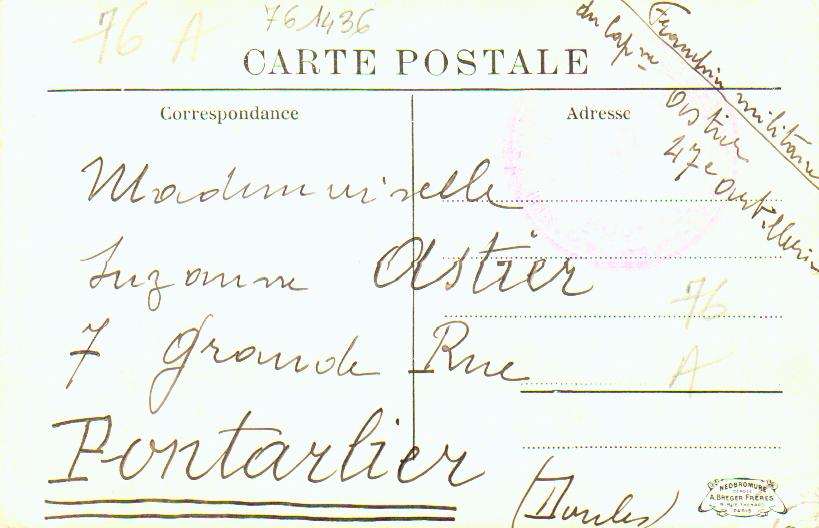 76 A
761436
CARTE POSTALE
Franchise militaire
du Capne Astier
47e Artillerie
Correspondance
Adresse
Mademoiselle
Suzanne Astier
7 Grande Rue
Pontarlier
(Doubs)
76
A
NEOBROMURE
A. BREGER FRÈRES
9, RUE THÉNARD
PARIS